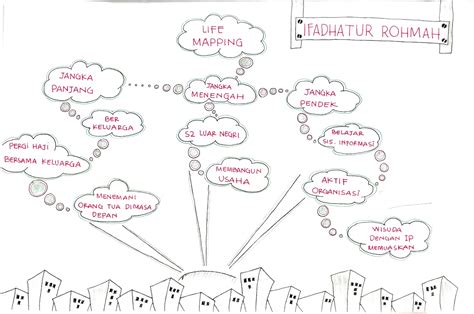 LIFE
MAPPING
IFADHATUR ROHMAH
JANGKA
PANJANG
JANGKA
MENENGAH
JANGKA
PENDEK
BER
KELUARGA
S2 LUAR NEGRI
BELAJAR
SIS. INFORMASI
PERGI HAJI
BERSAMA KELUARGA
MEMBANGUN
USAHA
AKTIF
ORGANISASI
MENEMANI
ORANG TUA DIMASA
DEPAN
WISUDA
DENGAN IP
MEMUASKAN